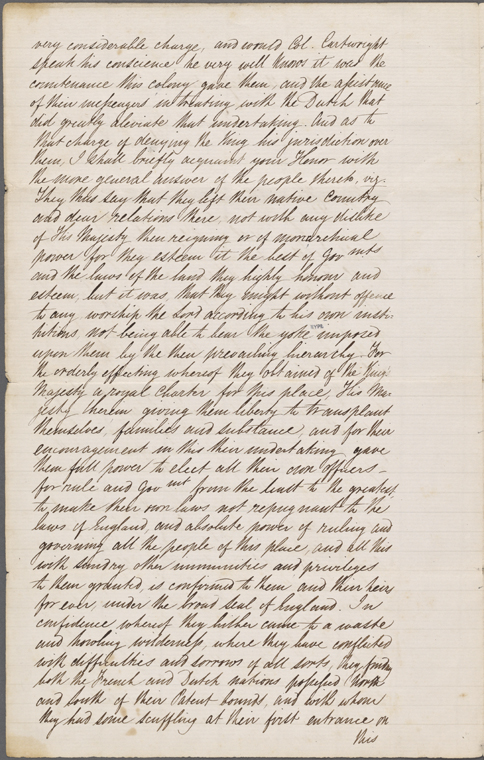 very considerable charge, and would Col. Cartwright
speak his conscience he very well knows it was the
countenance this colony gave them, and the assistance
of their messengers in treating with the Dutch that
did greatly aleviate that undertaking. And as to
that charge of denying the King his jurisdiction over
them, I shall briefly acquaint your Honor with
the more general answer of the people thereto, viz.
They thus say that they left their native country
and dear relations there, not with any dislike
of His Majesty then reigning or of monarchical
power for they esteem it the best of Govmts
and the laws of the land they highly honour and
esteem, but it was, that they might without offence
to any worship the Lord according to his own insti-
tutions, not being able to bear the yoke imposed
upon them by the then prevailing hierarchy. For
the orderly effecting whereof they obtained of the King's
Majesty a royal Charter for this place, His Ma-
jesty herein giving them liberty to transplant
themselves, families and substance, and for their
encouragement in this their undertaking gave
them full power to elect all their own officers
for rule and Govmt from the least to the greatest,
to make their own laws not repugnant to the
laws of England, and absolute power of ruling and
governing all the people of this place, and all this
with sundry other immunities and privileges
to them granted, is confirmed to them and their heirs
for ever, under the broad seal of England. In
confidence whereof they hither came to a waste
and howling wilderness, where they have conflicted
with difficulties and sorrows of all sorts, they finding
both the French and Dutch nations possessed North
and south of their Patent bounds, and with whom
they had some scuffling at their first entrance on
this